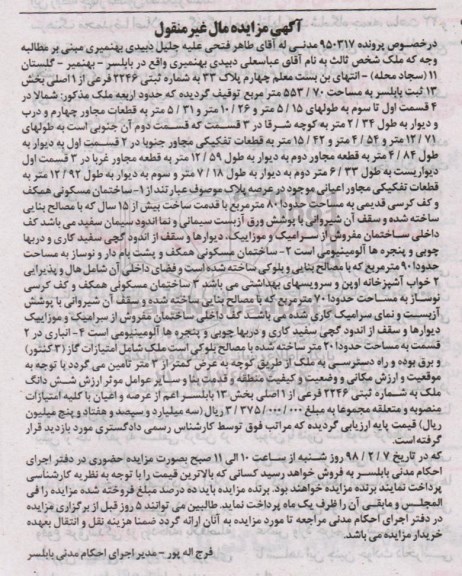 آگهی مزایده مال غیر منقول
درخصوص پرونده ۹۵۰۳۱۷ مدنی له آقای طاهر فتحی علیه جلیل دبیدی بهنمیری مبنی بر مطالبه
وجه که ملک شخص ثالث به نام آقای عباسعلی دبیدی بهنمیری واقع در بابلسر - بهنمیر - گلستان
۱۱ (سجاد محله) - انتهای بن بست معلم چهارم پلاک ۳۳ به شماره ثبتی ۲۲۴۶ فرعی از ۱ اصلی بخش
۱۳ ثبت بابلسر به مساحت ۷۰ / ۵۵۳ متر مربع توقیف گردیده که حدود اربعه ملک مذکور: شمالا در
۴ قسمت اول تا سوم به طولهای ۱۵ / ۵ متر و ۲۶ / ۱۰ متر و ۳۱ / ۵ متر به قطعات مجاور چهارم و درب
و دیوار به طول ۳۴ / ۲ متر به کوچه شرقا در ۳ قسمت که قسمت دوم آن جنوبی است به طولهای
۷۱ / ۱۲ متر و ۵۴ / ۴ متر و ۴۲ / ۱۵ متر به قطعات تفکیکی مجاور جنوبا در ۲ قسمت اول به دیوار به
طول ۸۴ / ۴ متر به قطعه مجاور دوم به دیوار به طول ۵۹ / ۱۲ متر به قطعه مجاور غربا در ۳ قسمت اول
دیواریست به طول ۳۳ / ۶ متر دوم به دیوار به طول ۱۸ / ۷ متر و سوم به دیوار به طول ۹۲ / ۱۲ متر به
قطعات تفکیکی مجاور اعیانی موجود در عرصه پلاک موصوف عبارتند از ۱- ساختمان مسکونی همکف
و کف کرسی قدیمی به مساحت حدودا ۸۰ مترمربع با قدمت ساخت بیش از ۱۵ سال که با مصالح بنایی
ساخته شده و سقف آن شیروانی با پوشش ورق آزبست سیمانی و نما اندود سیمان سفید می باشد کف
داخلی ساختمان مفروش از سرامیک و موزاییک، دیوارها و سقف از اندود گچی سفید کاری و دربها
چوبی و پنجره ها آلومینیومی است ۲- ساختمان مسکونی همکف و پشت بام دار و نوساز به مساحت
حدودا ۹۰ مترمربع که با مصالح بنایی و بلوکی ساخته شده است و فضای داخلی آن شامل هال و پذیرایی
۲ خواب آشپزخانه اوپن و سرویسهای بهداشتی می باشد ۳ ساختمان مسکونی همکف و کف کرسی
نوساز به مساحت حدودا ۷۰ مترمربع که با مصالح بنایی ساخته شده و سقف آن شیروانی با پوشش
آزبست و نمای سرامیک کاری شده می باشد. کف داخلی ساختمان مفروش از سرامیک و موزاییک
دیوارها و سقف از اندود گچی سفید کاری و دربها چوبی و پنجره ها آلومینیومی است ۴- انباری در ۲
قسمت به مساحت حدودا ۲۰ متر ساخته شده با مصالح بلوکی است ملک شامل امتیازات گاز (۳ کنتور)
و برق بوده و راه دسترسی به ملک از طریق کوچه به عرض کمتر از ۳ متر تامین می گردد با توجه به
موقعیت و ارزش مکانی و وضعیت و کیفیت منطقه و قدمت بنا و سایر عوامل موثر ارزش شش دانگ
ملک به شماره ثبتی ۲۲۴۶ فرعی از ۱ اصلی بخش ۱۳ بابلسر اعم از عرصه و اعیان با کلیه امتیازات
منصوبه و متعلقه مجموعا به مبلغ ۳/۳۷۵/۰۰۰/۰۰۰ ریال (سه میلیارد و سیصد و هفتاد و پنج میلیون
ریال) قیمت پایه ارزیابی گردیده که مراتب فوق توسط کارشناس رسمی دادگستری مورد بازدید قرار
گرفته است.
که در تاریخ ۷ / ۲ / ۹۸ روز شنبه از ساعت ۱۰ الی ۱۱ صبح بصورت مزایده حضوری در دفتر اجرای
احکام مدنی بابلسر به فروش خواهد رسید کسانی که بالاترین قیمت را با توجه به نظریه کارشناسی
پرداخت نمایند برنده مزایده خواهند بود. برنده مزایده باید ده درصد مبلغ فروخته شده مزایده را فی
المجلس و مابقی آن را ظرف یک ماه پرداخت نماید. طالبین می توانند ۵ روز قبل از برگزاری مزایده
در دفتر اجرای احکام مدنی مراجعه تا مورد مزایده به آنان ارائه گردد ضمنا هزینه نقل و انتقال بعهده
خریدار مزایده می باشد.
فرج اله پور - مدیر اجرای احکام مدنی بابلسر